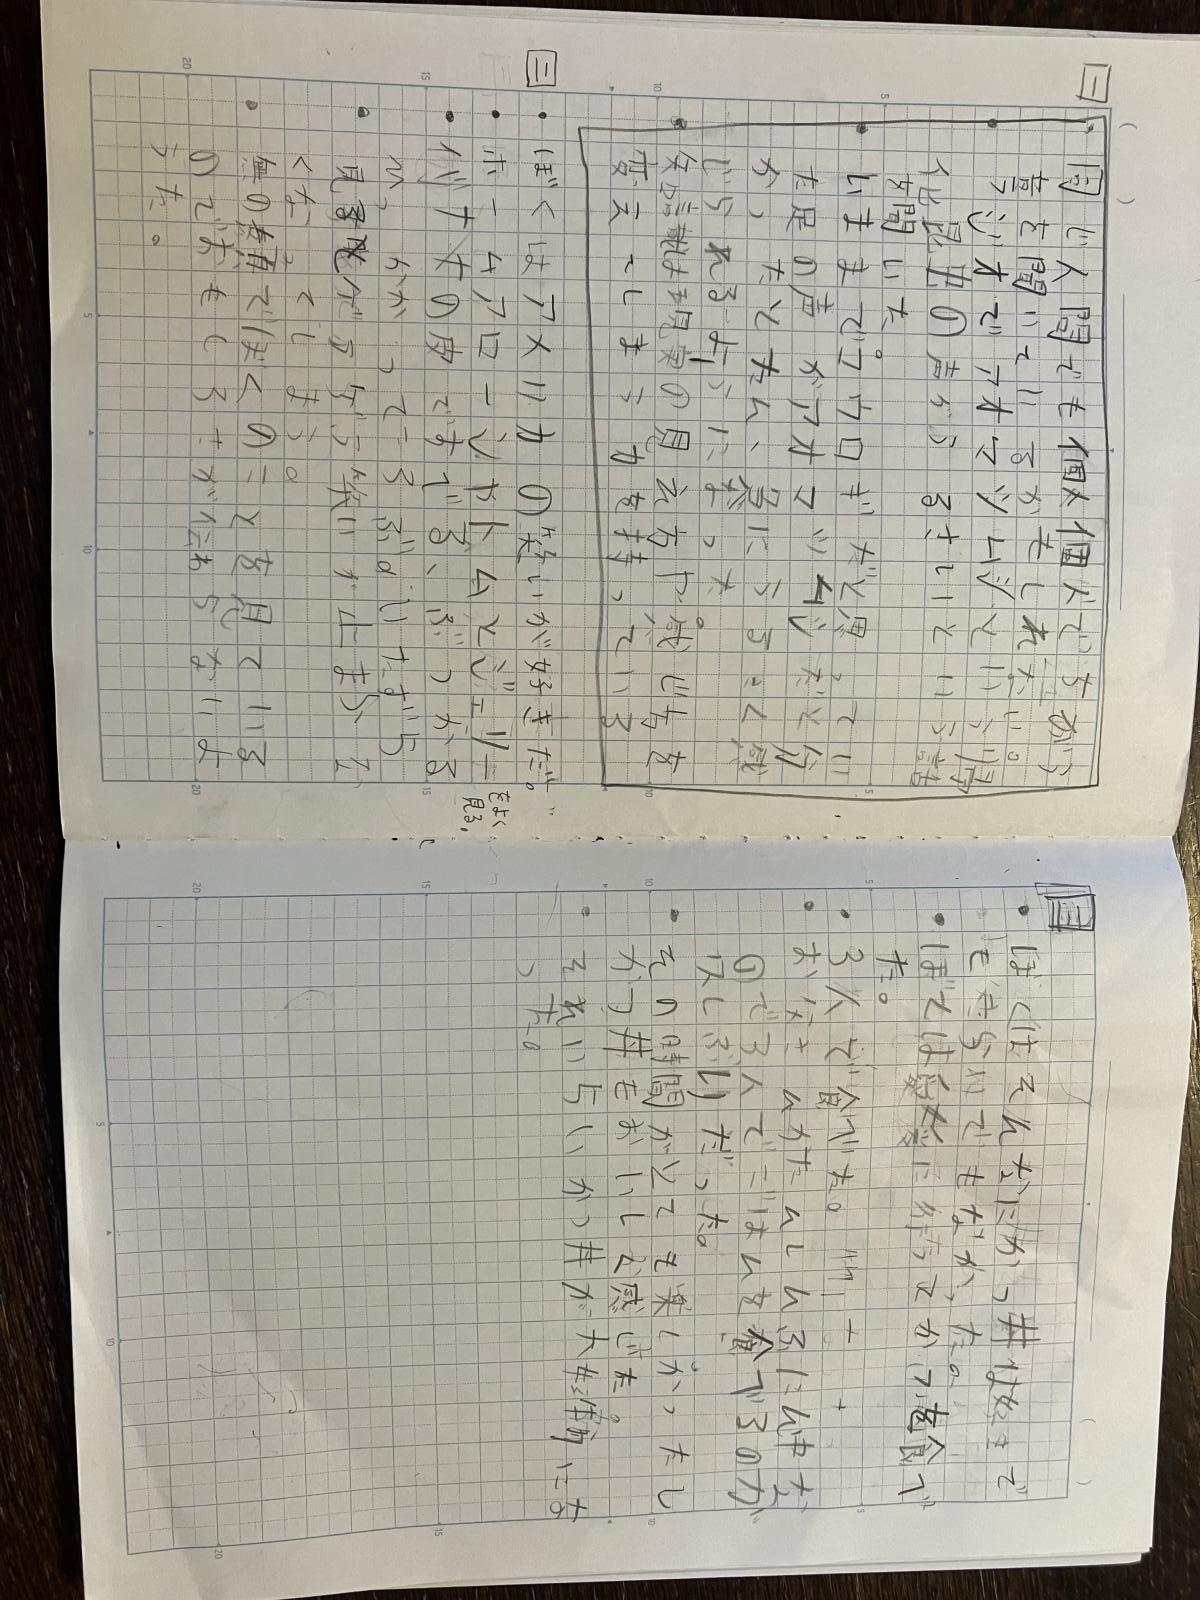 一
同じ人間でも個人個人でちがう
音を聞いているかもしれない。
ラジオでアオマツムシという帰
化昆虫の声がうるさいという話
を聞いた。
いままでコウロギだと思ってい
た足の声がアオマツムシだと分
かったとたん、急にうるさく感
じられるように なった。
知識は現実の見え方や感じ方を
変えてしまう力を持っている
二
ぼくはアメリカの笑いが好きだ。
ホームアローンやトムとジェリー
をよく
見る。
バナナの皮ですべる、ぶつかる
ひっかかってころぶ。いたずら
見え見えだけど、笑いが止まらな
くなってしまう。
無の顔でぼくのことを見ている
のでおもしろさが伝わらないよ
うだ。
三
ぼくはそんなにかつ丼は好きで
もきらいでもなかった。
ぼくは最後に行ってかつを食べ
た。
3人で食べた。
お父さんがたんしんふにん中な
ので3人でごはんを食べるのが
久しぶりだった。
その時間がとても楽しかったし
かつ丼もおいしく感じた。
それいらいかつ丼が大好物にな
った。